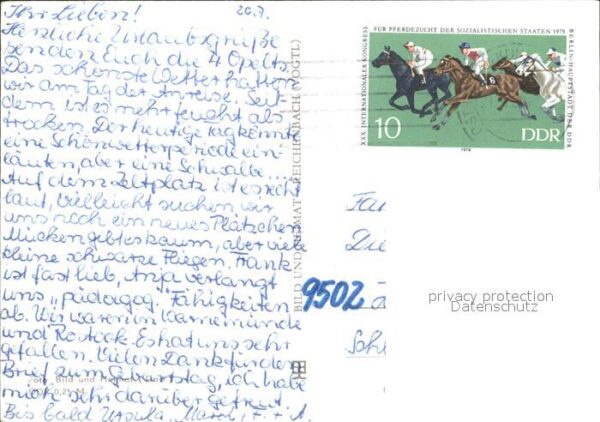 Ihr Lieben! 20.7.
Herzliche Urlaubsgrüße
senden Euch die 4 Opelts
Das schönste Wetter hatten
wir am Tag der Anreise. Seit
dem ist es mehr feucht als
trocken. Der heutige Tag könnte
eine Schönwetterperiode ein-
läuten, aber eine Schwalbe...
Auf dem Zeltplatz ist es recht
laut, vielleicht suchen wir
uns noch ein neues Plätzchen
Mücken gibt es kaum, aber viele
kleine schwarze Fliegen. Frank
ist fast lieb, Anja verlangt
uns "pädagog. Fähigkeiten
ab. Wir waren in Warnemünde
und Rostock. Es hat uns sehr
gefallen. Vielen Dank für den
Brief zum Geburtstag, ich habe
mich sehr darüber gefreut
Bis bald Ursula, F. + A.
Foto: Bild und Heimat
BILD UND HEIMAT REICHENBACH (VOGTL)
XXX. INTERNATIONALER KONGRESS
FÜR PFERDEZUCHT DER SOZIALISTISCHEN STAATEN 1979
BERLIN-HAUPTSTADT DER DDR
10
DDR
1979
Die
9502
privacy protection
Datenschutz